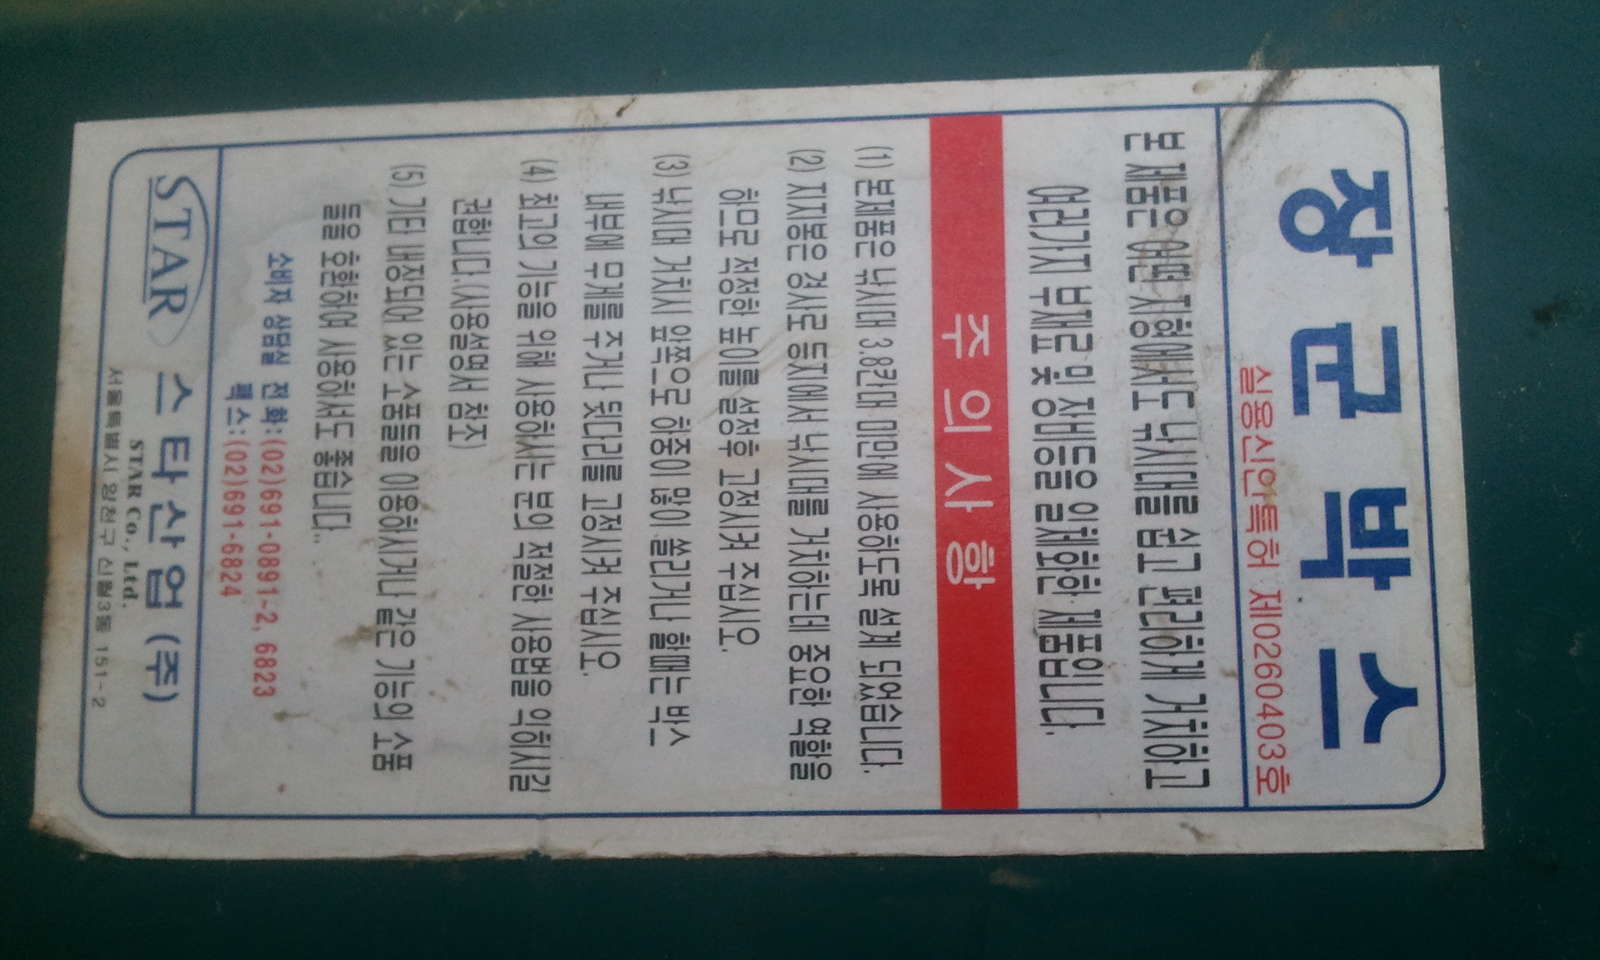 장군박스
실용신안특허 제0260403호
본 제품은 어떤 지형에서도 낚시대를 쉽고 편리하게 거치하고
여러가지 부재료 및 장비들을 일체화한 제품입니다.
주의사항
(1) 본제품은 낚시대 3.8칸대 미만에 사용하도록 설계 되었습니다.
(2) 지지봉은 경사로 등지에서 낚시대를 거치하는데 중요한 역할을
하므로 적정한 높이를 설정후 고정시켜 주십시오.
(3) 낚시대 거치시 앞쪽으로 하중이 많이 쏠리거나 할때는 박스
내부에 무게를 주거나 뒷다리를 고정시켜 주십시오.
(4) 최고의 기능을 위해 사용하시는 분의 적절한 사용법을 익히시길
권합니다.(사용설명서 참조)
(5) 기타 내장되어 있는 소품들을 이용하시거나 같은 기능의 소품
들을 호환하여 사용하셔도 좋습니다.
소비자 상담실 전화:(02)691-0891-2, 6823
팩스:(02)691-6824
STAR 스타산업(주)
STAR Co., Ltd.
서울특별시 양천구 신월3동 151-2